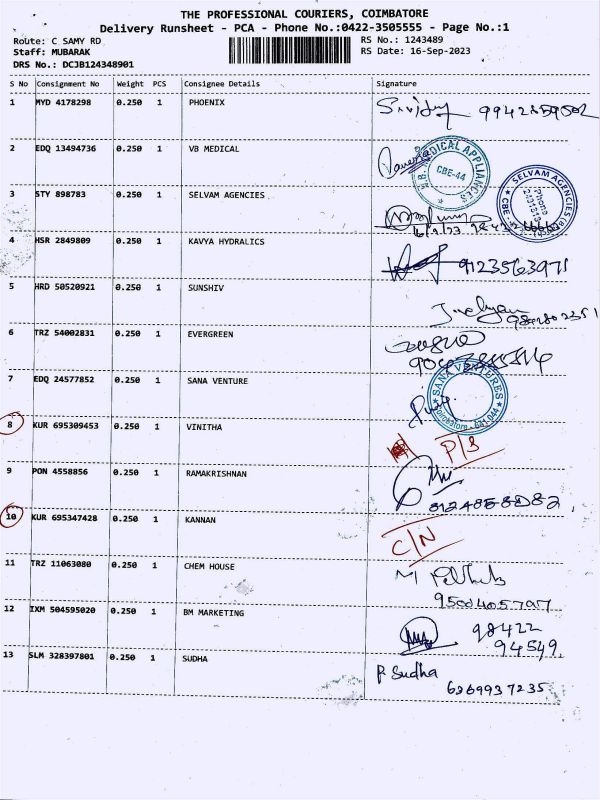 THE PROFESSIONAL COURIERS, COIMBATORE
Delivery Runsheet - PCA - Phone No.:0422-3505555 - Page No.:1
Route: C SAMY RD
Staff: MUBARAK
DRS No.: DCJB124348901
RS No.: 1243489
RS Date: 16-Sep-2023
S No Consignment No Weight PCS Consignee Details Signature
1 MYD 4178298 0.250 1 PHOENIX
2 EDQ 13494736 0.250 1 VB MEDICAL
V.B. MEDICAL APPLIANCES
CBE-44
3 STY 898783 0.250 1 SELVAM AGENCIES
SELVAM AGENCIES
Phone
4 HSR 2849809 0.250 1 KAVYA HYDRALICS 9123563971
5 HRD 50520921 0.250 1 SUNSHIV
6 TRZ 54002831 0.250 1 EVERGREEN
7 EDQ 24577852 0.250 1 SANA VENTURE
SANA VENTURES
Coimbatore - 641 044
8 KUR 695309453 0.250 1 VINITHA P/S
9 PON 4558856 0.250 1 RAMAKRISHNAN
10 KUR 695347428 0.250 1 KANNAN C/N
11 TRZ 11063080 0.250 1 CHEM HOUSE
12 IXM 504595020 0.250 1 BM MARKETING 98422
94549
13 SLM 328397801 0.250 1 SUDHA P. Sudha
6269937235